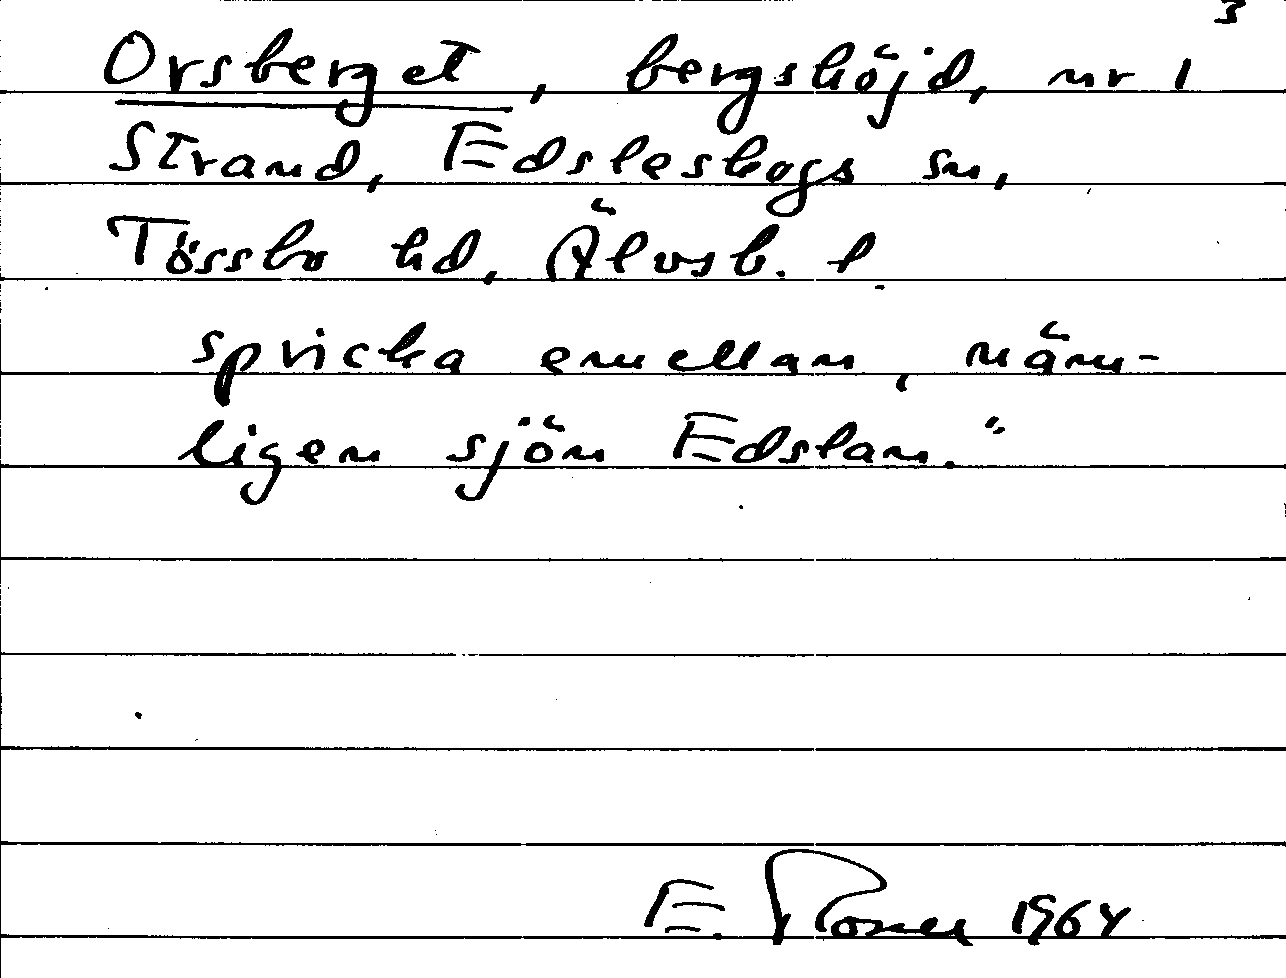 3
Orsberget, bergshöjd, nr 1
Strand, Edsleskogs sn,
Tössbo hd, Älvsb. l
spricka emellan, näm-
ligen sjön Edslan."
E. 1964